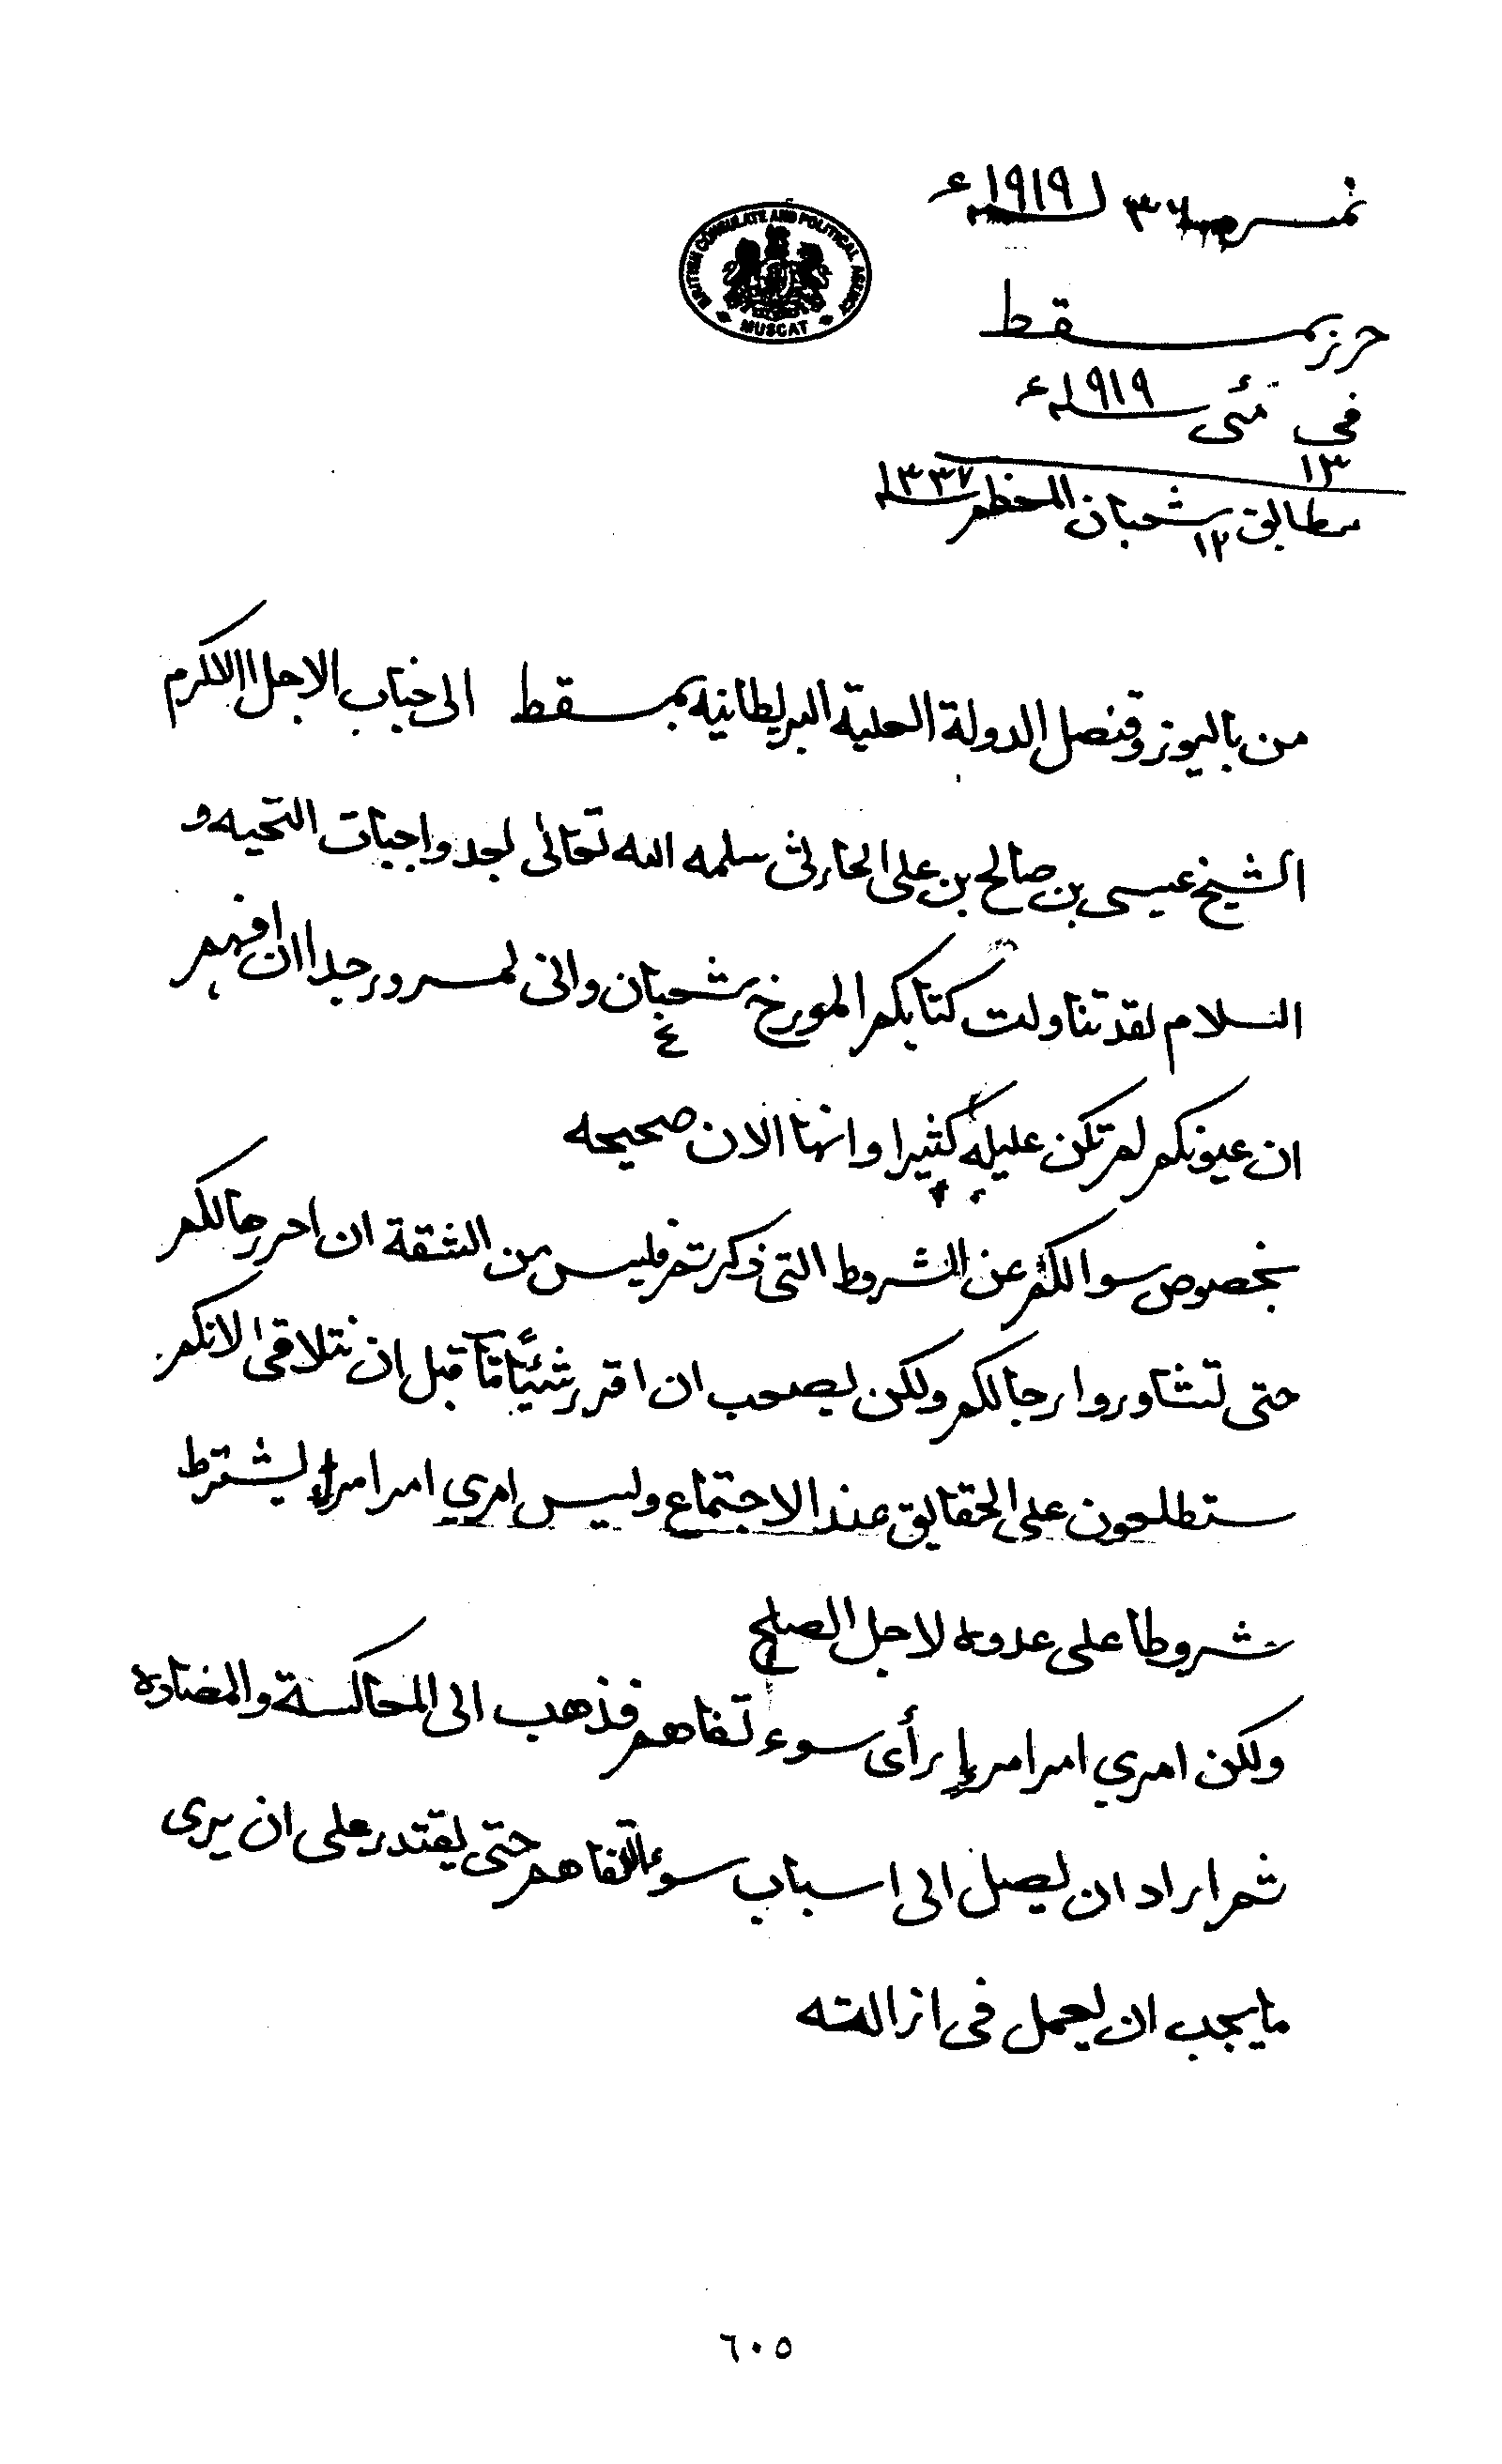 نمبر ٣٦ لسنه ١٩١٩ء
BRITISH CONSULATE AND POLITICAL AGENCY
MUSCAT
حرز بمسقط
في ١٣ مئى سنه ١٩١٩ء
مطابق ١٢ شعبان المعظم سنه ١٣٣٧
من باليوز وقنصل الدولة العلية البريطانيه بمسقط الى جناب الاجل الاكرم
الشيخ عيسى بن صالح بن على الحارثى سلمه الله تعالى لعد واجبات التحيه و
السلام لقد تناولت كتابكم المورخ ٤ شعبان وانى لمسرور جدا ان افهم
ان عيونكم لم تكن عليله كثيرا وانها الان صحيحه
بخصوص سوالكم عن الشروط التى ذكرتم فليس من الشقة ان احرر جالكم
حتى تشاوروا رجالكم ولكن يصعب ان اقرر شيئا ما قبل ان نتلاقى لانكم
ستطلعون على الحقايق عند الاجتماع وليس امري امرا مرء يشترط
شروطا على عدوه لاجل الصلح
ولكن امري امرا مرء رأى سوء تفاهم فذهب الى المعاكسة والمضاده
ثم اراد ان يصل الى اسباب سوء التفاهم حتى يقتدر على ان يرى
ما يجب ان يعمل فى ازالته
٦٠٥